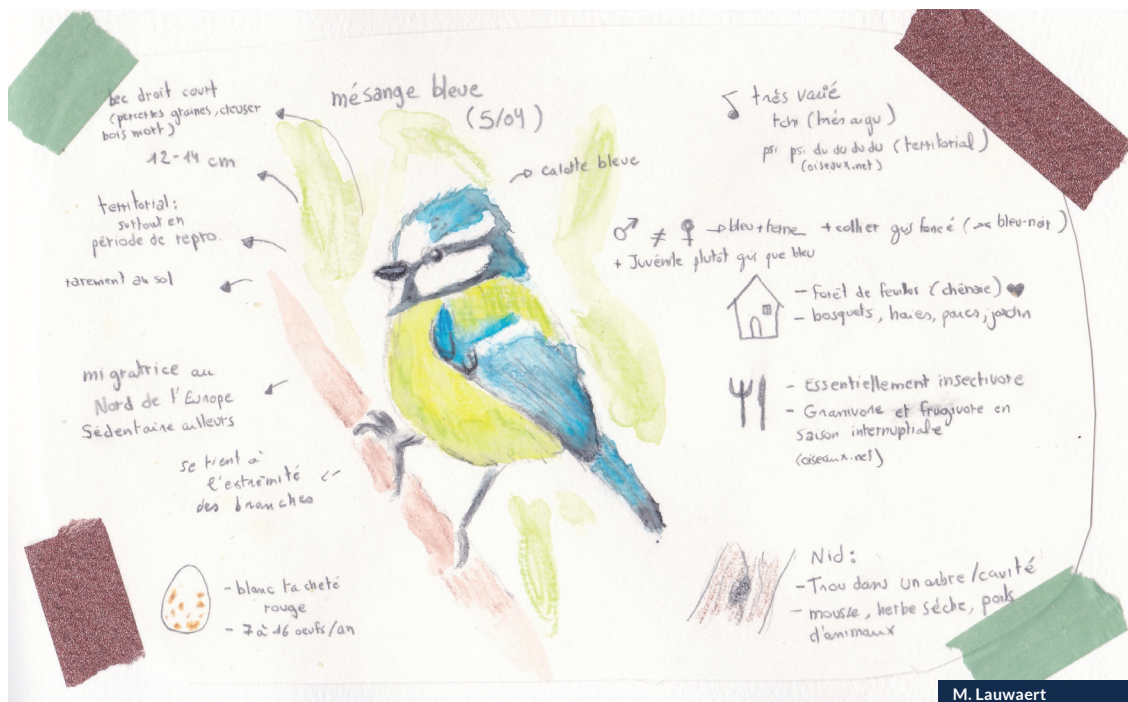 mésange bleue
(5/04)
bec droit court
(percer les graines, creuser
bois mort)
12-14 cm
territorial:
surtout en
période de repro.
rarement au sol
migratrice au
Nord de l'Europe
Sédentaire ailleurs
se tient à
l'extrémité
des branches
- blanc tacheté
rouge
- 7 à 16 oeufs/an
calotte bleue
très varié
tchi (très aigu)
psi psi du du du du (territorial)
(oiseaux.net)
♂ ≠ ♀ → bleu + terne + collier gris foncé (>< bleu-noir)
+ Juvénile plutôt gris que bleu
- Forêt de feuillus (chênaie) ♥
- bosquets, haies, parcs, jardin
- Essentiellement insectivore
- Granivore et frugivore en
saison internuptiale
(oiseaux.net)
Nid:
- Trou dans un arbre/cavité
- mousse, herbe sèche, poils
d'animaux
M. Lauwaert